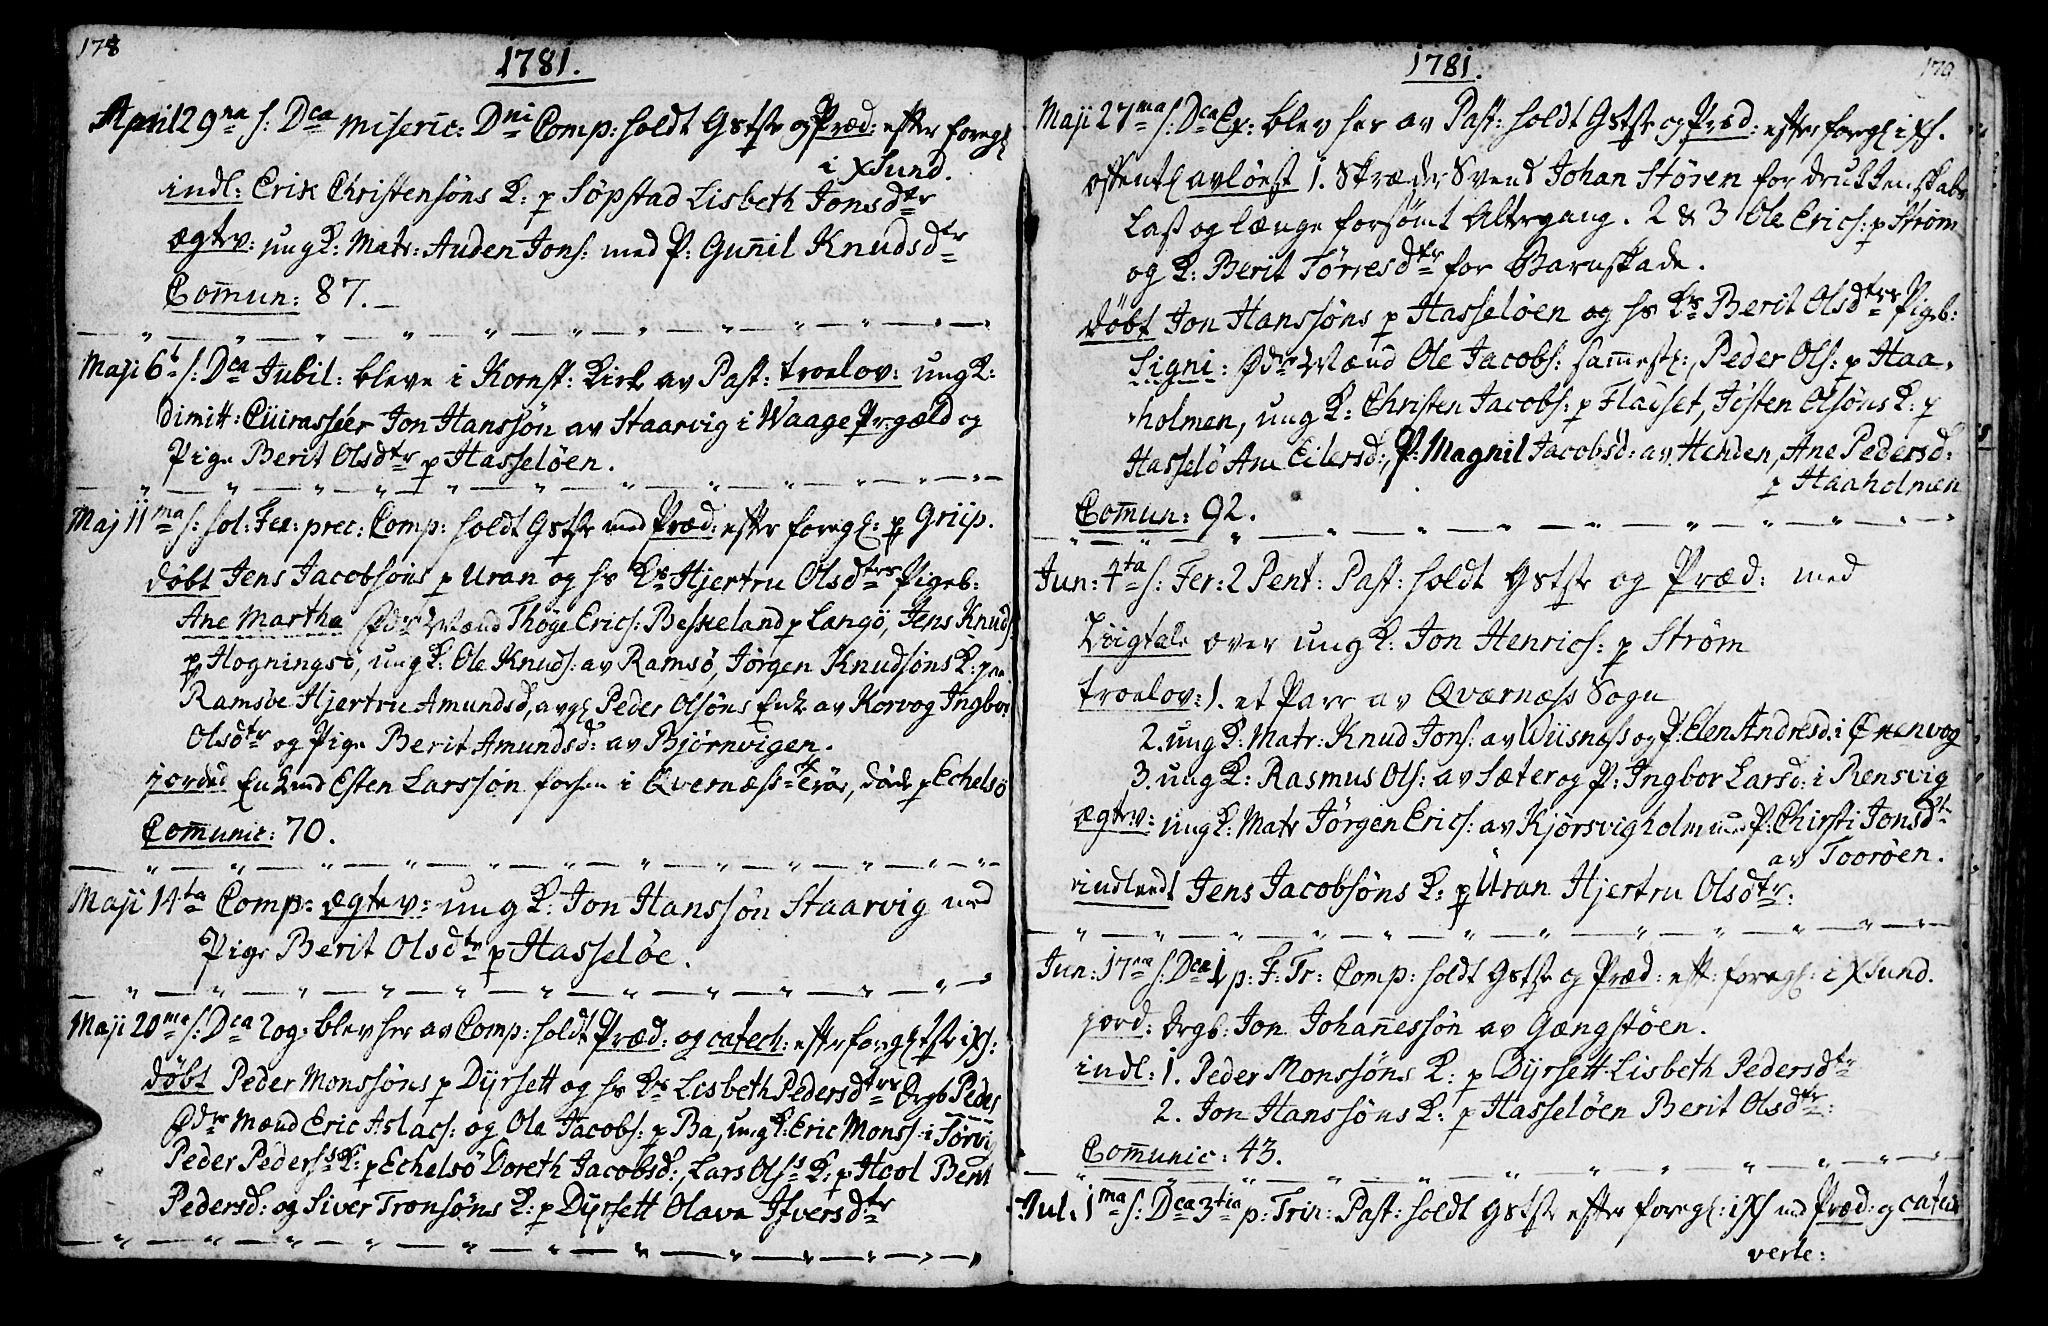 178
1781.
April 29na s: Dca miseric: Dni Comp: holdt Gstste og Præd: efter foregl
i Xsund.
indl: Erik Christensöns K: p Söpstad Lisbeth Jonsdtr
ægtev: ung K: Matr: Auden Jons: med P: Gunil Knudsdtr
Commun: 87.
Maji 6t s: Dca Jubil: bleve i Kornst: Kirke av Past: troelov: ung K:
dimitt: Cüirasséer Jon Hanssön av Staarvig i Waage Pr:gæld og
Pige Berit Olsdtr p Hasselöen.
Maj 11ma s: sol: Fer: prec: Comp: holdt Gstste med Præd: efter foregl: p Griip.
döbt Jens Jacobsöns p Uran og hs Ks Hjertru Olsdtrs Pigeb:
Ane Martha Fdr Mænd Thöge Erics: Beskeland p Langö, Jens Knuds:
p Hogningsö, ung K: Ole Knuds: av Ramsö, Jörgen Knudsöns K: paa
Ramsöe Hjertru Amundsd, avgl Peder Olsöns Enke av Korvog Ingbor
Olsdtr og Pige Berit Amundsd: av Björnvigen.
jorded Enkmd Esten Larssön forhen i Qvernæss Eröe, döde p Echelsö
Comunic: 70.
Maji 14ta Comp: ægtev: ung K: Jon Hanssön Staarvig med
Pige Berit Olsdtr p Hasselöe.
Maji 20ma s: Dca Rog: blev her av Comp: holdt Præd: og catech: efter foregl tste i Xs:
döbt Peder Monssöns p Dyrsett og hs Ks Lisbeth Pedersdtrs Drgb Peder
Fdr Mænd Eric Aslacs: og Ole Jacobs: p Ba, ung K: Eric Monss: i Sörvig
Peder Pederss K: p Echelsö Doreth Jacobsd:, Lars Olss K: p Hool Berit
Pedersd: og Siver Tronsöns K: p Dyrsett Olava Ifversdtr
179
1781.
Maji 27ma s: Dca Ex: blev her av Past: holdt Gstste og Præd: efter foregl i Xs.
offentl avlöest 1. Skræder Svend Johan Stören for drukkenskabs
Last og længe forsömt Altergang. 2 & 3 Ole Erics: p Ström
og K: Berit Törresdtr for Barnskade.
döbt Jon Hanssöns p Hasselöen og hs Ks Berit Olsdtrs Pigeb:
Signi: Fdr Mænd Ole Jacobs: sammestl:, Peder Ols: p Haa-
holmen, ung K: Christen Jacobs: p Fladset, Jösten Olsöns K: p
Hasselö Ane Eilersd:, P: Magnil Jacobsd: av Henden, Ane Pedersd:
p Haaholmen
Comun: 92.
Jun: 4ta s: Fer: 2 Pent: Past: holdt Gstste og Præd: med
Liigtale over ung K: Jon Henrics: p Ström
troelov: 1. et Parr av Qværnæss Sogn
2. ung K: Matr: Knud Jons: av Wiisnæss og P: Elen Andresd: i Ørenvog
3. ung K: Rasmus Ols: av Sæter og P: Ingbor Larsd: i Rensvig
ægtev: ung K: Matr Jörgen Erics: av Kjörsvigholm med P: Chirsti Jonsdtr
av Tooröen.
indledt Jens Jacobsöns K: p Uran Hjertru Olsdtr:
Jun: 17ma s: Dca 1 p: F: Tr: Comp: holdt Gstste og Præd: eft: foregl: i Xsund.
jord: Drgb: Jon Johannessön av Gængstöen.
indl: 1. Peder Monssöns K: p Dyrsett Lisbeth Pedersdtr
2. Jon Hanssöns K: p Hasselöen Berit Olsdtr:
Comunic: 43.
Jul. 1ma s: Dca 3tia p: Trin: Past: holdt Gstste efter foregl: i Xs med Præd: og catech
verte: